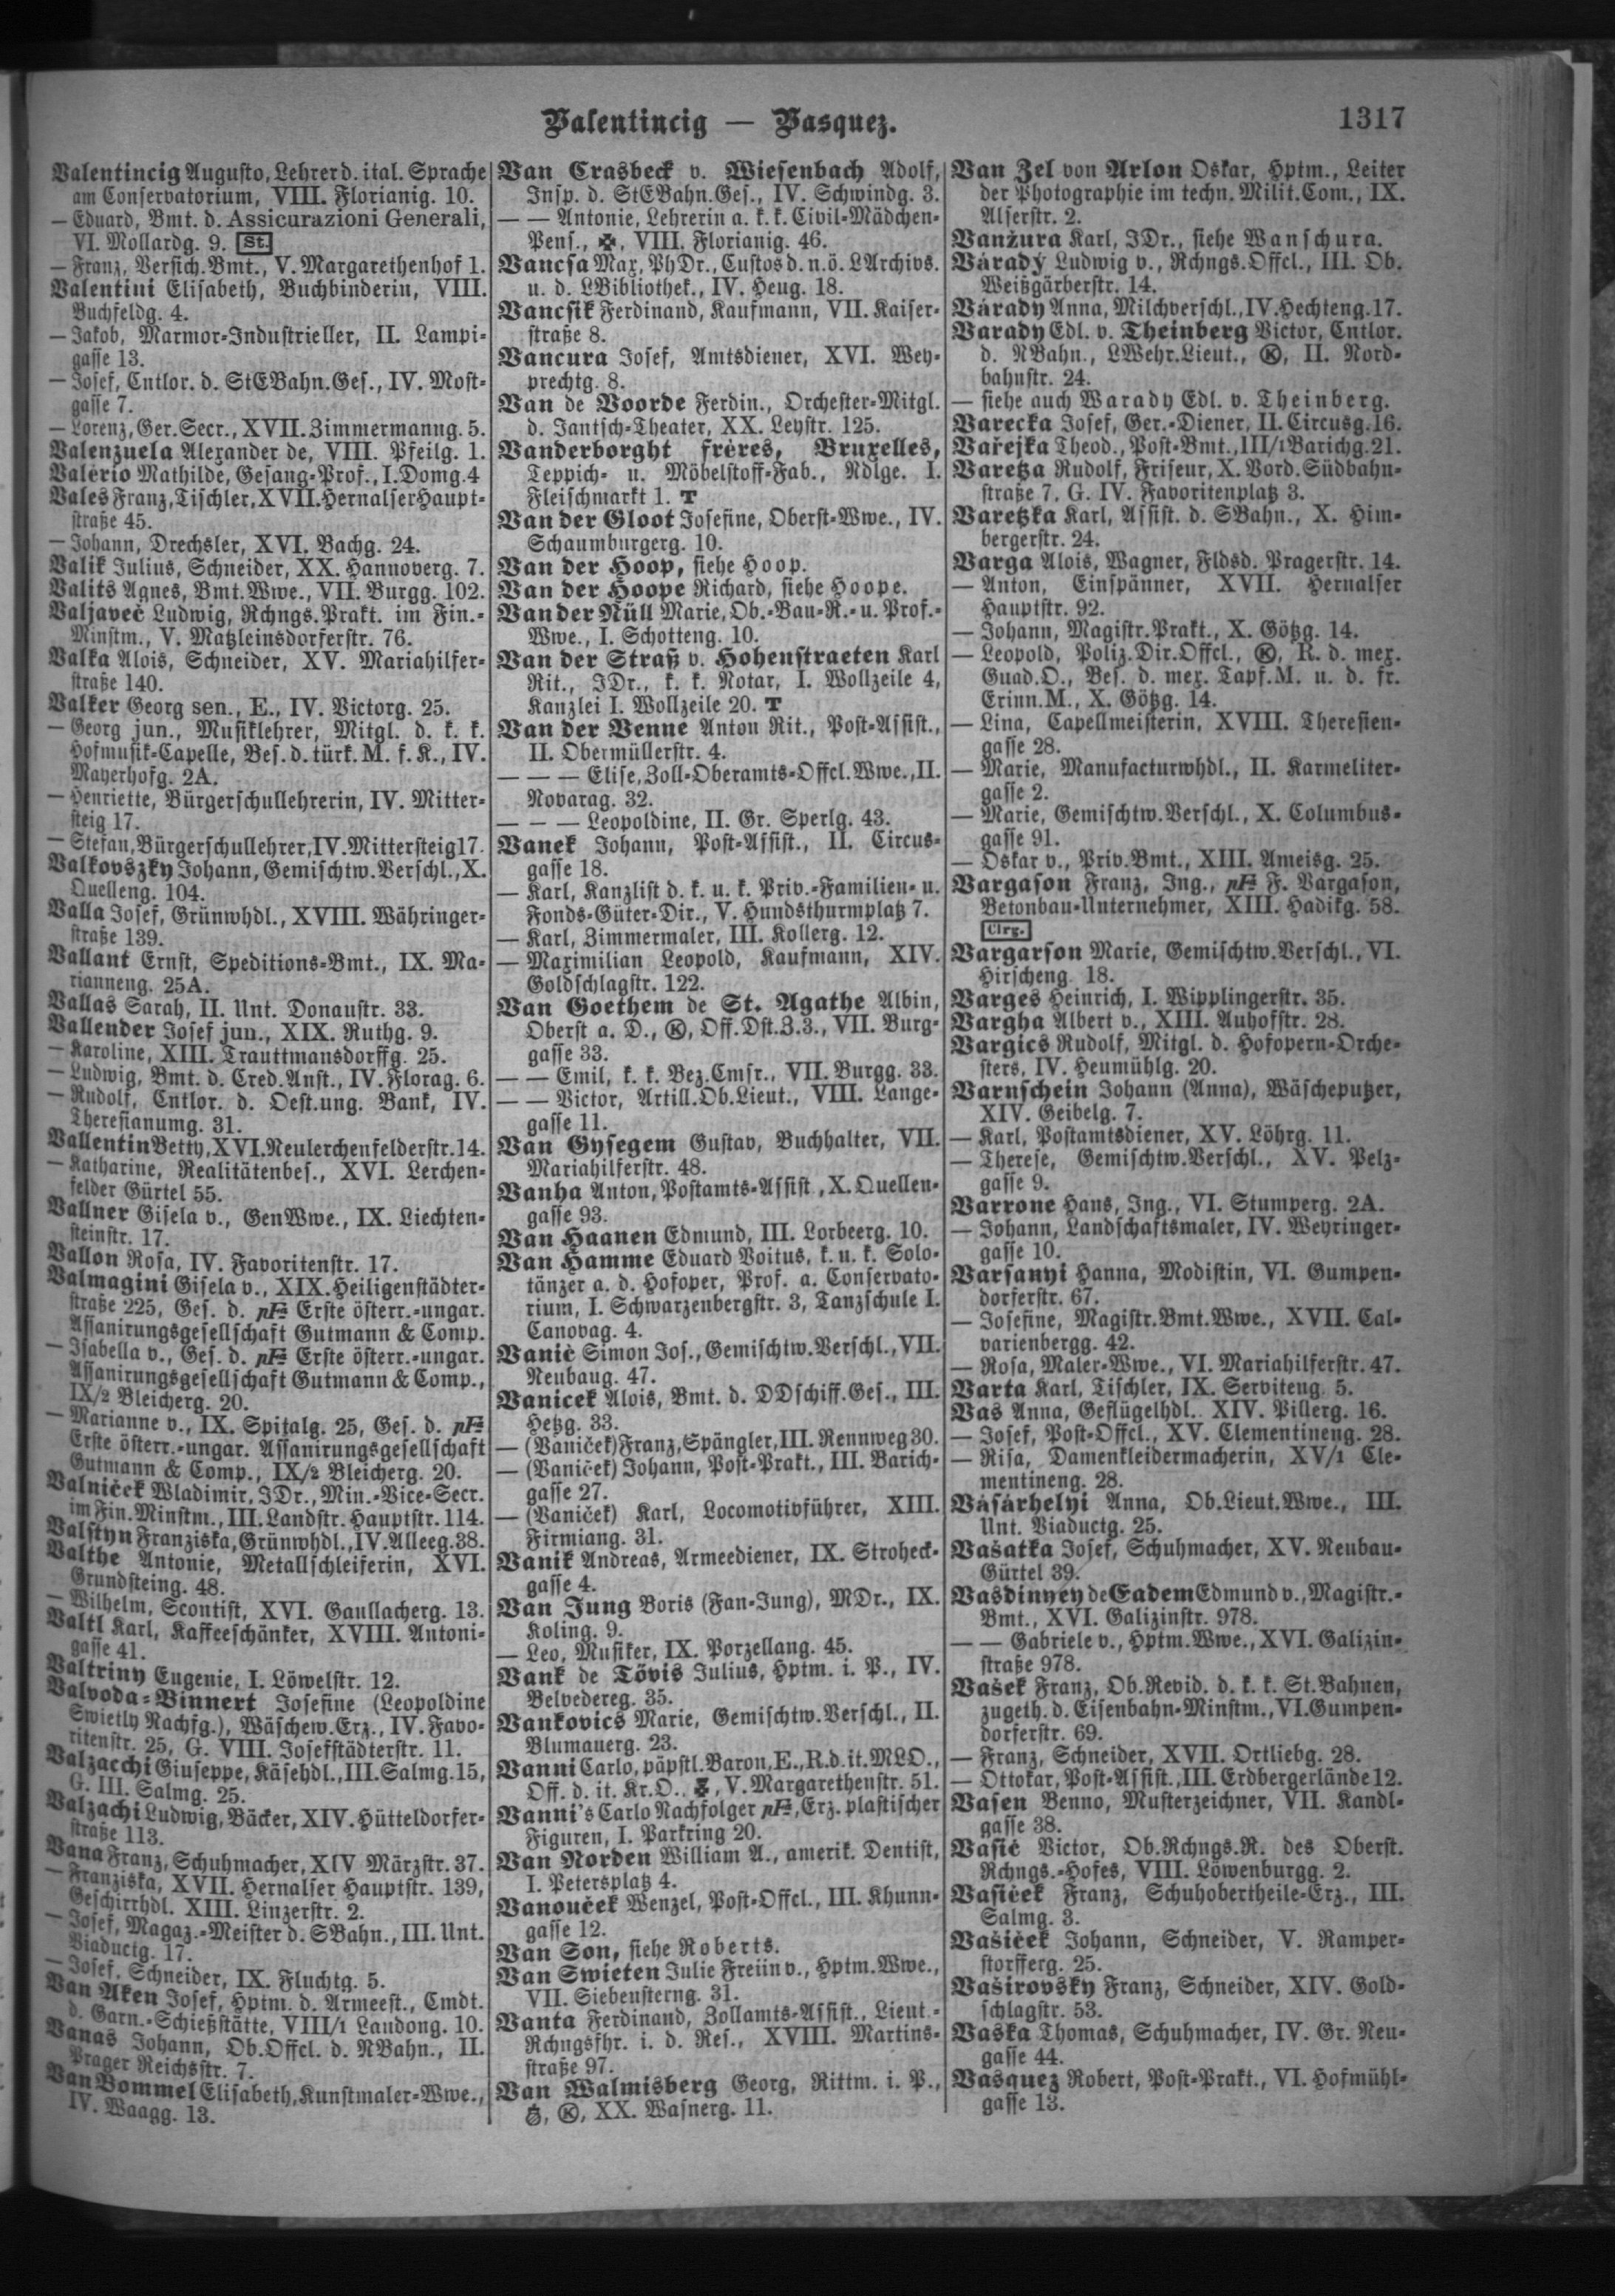 Valentincig — Vasquez.
1317
Valentincig Augusto, Lehrer d. ital. Sprache
am Conservatorium, VIII. Florianig. 10.
— Eduard, Bmt. d. Assicurazioni Generali,
VI. Mollardg. 9. St.
— Franz, Versich.Bmt., V. Margarethenhof 1.
Valentini Elisabeth, Buchbinderin, VIII.
Buchfeldg. 4.
— Jakob, Marmor-Industrieller, II. Lampi-
gasse 13.
— Josef, Cntlor. d. StEBahn.Ges., IV. Most-
gasse 7.
— Lorenz, Ger.Secr., XVII. Zimmermanng. 5.
Valenzuela Alexander de, VIII. Pfeilg. 1.
Valério Mathilde, Gesang-Prof., I. Domg. 4
Vales Franz, Tischler, XVII. Hernalser Haupt-
straße 45.
— Johann, Drechsler, XVI. Bachg. 24.
Valik Julius, Schneider, XX. Hannoverg. 7.
Valits Agnes, Bmt.Wwe., VII. Burgg. 102.
Valjaveč Ludwig, Rchngs.Prakt. im Fin.-
Minstm., V. Matzleinsdorferstr. 76.
Valka Alois, Schneider, XV. Mariahilfer-
straße 140.
Valker Georg sen., E., IV. Victorg. 25.
— Georg jun., Musiklehrer, Mitgl. d. k. k.
Hofmusik-Capelle, Bes. d. türk. M. f. K., IV.
Mayerhofg. 2A.
— Henriette, Bürgerschullehrerin, IV. Mitter-
steig 17.
— Stefan, Bürgerschullehrer, IV. Mittersteig 17.
Valkovszky Johann, Gemischtw.Verschl., X.
Quelleng. 104.
Valla Josef, Grünwhdl., XVIII. Währinger-
straße 139.
Vallant Ernst, Speditions-Bmt., IX. Ma-
rianneng. 25A.
Vallas Sarah, II. Unt. Donaustr. 33.
Vallender Josef jun., XIX. Ruthg. 9.
— Karoline, XIII. Trauttmansdorffg. 25.
— Ludwig, Bmt. d. Cred.Anst., IV. Florag. 6.
— Rudolf, Cntlor. d. Oest.ung. Bank, IV.
Theresianumg. 31.
Vallentin Betty, XVI. Neulerchenfelderstr. 14.
— Katharine, Realitätenbes., XVI. Lerchen-
felder Gürtel 55.
Vallner Gisela v., GenWwe., IX. Liechten-
steinstr. 17.
Vallon Rosa, IV. Favoritenstr. 17.
Valmagini Gisela v., XIX. Heiligenstädter-
straße 225, Ges. d. pF Erste österr.-ungar.
Assanirungsgesellschaft Gutmann & Comp.
— Isabella v., Ges. d. pF Erste österr.-ungar.
Assanirungsgesellschaft Gutmann & Comp.,
IX/2 Bleicherg. 20.
— Marianne v., IX. Spitalg. 25, Ges. d. pF
Erste österr.-ungar. Assanirungsgesellschaft
Gutmann & Comp., IX/2 Bleicherg. 20.
Valniček Wladimir, JDr., Min.-Vice-Secr.
im Fin.Minstm., III. Landstr. Hauptstr. 114.
Valstyn Franziska, Grünwhdl., IV. Alleeg. 38.
Valthe Antonie, Metallschleiferin, XVI.
Grundsteing. 48.
— Wilhelm, Scontist, XVI. Gaullacherg. 13.
Valtl Karl, Kaffeeschänker, XVIII. Antoni-
gasse 41.
Valtriny Eugenie, I. Löwelstr. 12.
Valvoda-Binnert Josefine (Leopoldine
Swietly Nachfg.), Wäschew.Erz., IV. Favo-
ritenstr. 25, G. VIII. Josefstädterstr. 11.
Valzacchi Giuseppe, Käsehdl., III. Salmg. 15,
G. III. Salmg. 25.
Valzachi Ludwig, Bäcker, XIV. Hütteldorfer-
straße 113.
Vana Franz, Schuhmacher, XIV Märzstr. 37.
— Franziska, XVII. Hernalser Hauptstr. 139,
Geschirrhdl. XIII. Linzerstr. 2.
— Josef, Magaz.-Meister d. SBahn., III. Unt.
Viaductg. 17.
— Josef, Schneider, IX. Fluchtg. 5.
Van Aken Josef, Hptm. d. Armeest., Cmdt.
d. Garn.-Schießstätte, VIII/1 Laudong. 10.
Vanas Johann, Ob.Offcl. d. NBahn., II.
Prager Reichsstr. 7.
Van Bommel Elisabeth, Kunstmaler-Wwe.,
IV. Waagg. 13.
Van Crasbeck v. Wiesenbach Adolf,
Insp. d. StEBahn.Ges., IV. Schwindg. 3.
— — Antonie, Lehrerin a. k. k. Civil-Mädchen-
Pens., ✠, VIII. Florianig. 46.
Vancsa Max, PhDr., Custos d. n.ö. LArchivs.
u. d. LBibliothek., IV. Heug. 18.
Vancsik Ferdinand, Kaufmann, VII. Kaiser-
straße 8.
Vancura Josef, Amtsdiener, XVI. Wey-
prechtg. 8.
Van de Voorde Ferdin., Orchester-Mitgl.
d. Jantsch-Theater, XX. Leystr. 125.
Vanderborght frères, Bruxelles,
Teppich- u. Möbelstoff-Fab., Ndlge. I.
Fleischmarkt 1. T
Van der Gloot Josefine, Oberst-Wwe., IV.
Schaumburgerg. 10.
Van der Hoop, siehe Hoop.
Van der Hoope Richard, siehe Hoope.
Van der Nüll Marie, Ob.-Bau-R.- u. Prof.-
Wwe., I. Schotteng. 10.
Van der Straß v. Hohenstraeten Karl
Rit., JDr., k. k. Notar, I. Wollzeile 4,
Kanzlei I. Wollzeile 20. T
Van der Venne Anton Rit., Post-Assist.,
II. Obermüllerstr. 4.
— — — Elise, Zoll-Oberamts-Offcl.Wwe., II.
Novarag. 32.
— — — Leopoldine, II. Gr. Sperlg. 43.
Vanek Johann, Post-Assist., II. Circus-
gasse 18.
— Karl, Kanzlist d. k. u. k. Priv.-Familien- u.
Fonds-Güter-Dir., V. Hundsthurmplatz 7.
— Karl, Zimmermaler, III. Kollerg. 12.
— Maximilian Leopold, Kaufmann, XIV.
Goldschlagstr. 122.
Van Goethem de St. Agathe Albin,
Oberst a. D., Ⓚ, Off.Dst.Z.3., VII. Burg-
gasse 33.
— — Emil, k. k. Bez.Cmsr., VII. Burgg. 33.
— — Victor, Artill.Ob.Lieut., VIII. Lange-
gasse 11.
Van Gysegem Gustav, Buchhalter, VII.
Mariahilferstr. 48.
Vanha Anton, Postamts-Assist., X. Quellen-
gasse 93.
Van Haanen Edmund, III. Lorbeerg. 10.
Van Hamme Eduard Voitus, k. u. k. Solo-
tänzer a. d. Hofoper, Prof. a. Conservato-
rium, I. Schwarzenbergstr. 3, Tanzschule I.
Canovag. 4.
Vanić Simon Jos., Gemischtw.Verschl., VII.
Neubaug. 47.
Vanicek Alois, Bmt. d. DDschiff.Ges., III.
Hetzg. 33.
— (Vaniček) Franz, Spängler, III. Rennweg 30.
— (Vaniček) Johann, Post-Prakt., III. Barich-
gasse 27.
— (Vaniček) Karl, Locomotivführer, XIII.
Firmiang. 31.
Vanik Andreas, Armeediener, IX. Stroheck-
gasse 4.
Van Jung Boris (Fan-Jung), MDr., IX.
Koling. 9.
— Leo, Musiker, IX. Porzellang. 45.
Vank de Tövis Julius, Hptm. i. P., IV.
Belvedereg. 35.
Vankovics Marie, Gemischtw.Verschl., II.
Blumauerg. 23.
Vanni Carlo, päpstl. Baron, E., R. d. it. MLO.,
Off. d. it. Kr.O., V. Margarethenstr. 51.
Vanni's Carlo Nachfolger pF, Erz. plastischer
Figuren, I. Parkring 20.
Van Norden William A., amerik. Dentist,
I. Petersplatz 4.
Vanouček Wenzel, Post-Offcl., III. Khunn-
gasse 12.
Van Son, siehe Roberts.
Van Swieten Julie Freiin v., Hptm.Wwe.,
VII. Siebensterng. 31.
Vanta Ferdinand, Zollamts-Assist., Lieut.-
Rchngsfhr. i. d. Res., XVIII. Martins-
straße 97.
Van Walmisberg Georg, Rittm. i. P.,
Ⓚ, XX. Wasnerg. 11.
Van Zel von Arlon Oskar, Hptm., Leiter
der Photographie im techn. Milit.Com., IX.
Alserstr. 2.
Vanžura Karl, JDr., siehe Wanschura.
Várady Ludwig v., Rchngs.Offcl., III. Ob.
Weißgärberstr. 14.
Várady Anna, Milchverschl., IV. Hechteng. 17.
Varady Edl. v. Theinberg Victor, Cntlor.
d. NBahn., LWehr.Lieut., Ⓚ, II. Nord-
bahnstr. 24.
— siehe auch Warady Edl. v. Theinberg.
Varecka Josef, Ger.-Diener, II. Circusg. 16.
Vařejka Theod., Post-Bmt., III/1 Barichg. 21.
Varetza Rudolf, Friseur, X. Vord. Südbahn-
straße 7, G. IV. Favoritenplatz 3.
Varetzka Karl, Assist. d. SBahn., X. Him-
bergerstr. 24.
Varga Alois, Wagner, Fldsd. Pragerstr. 14.
— Anton, Einspänner, XVII. Hernalser
Hauptstr. 92.
— Johann, Magistr.Prakt., X. Götzg. 14.
— Leopold, Poliz.Dir.Offcl., Ⓚ, R. d. mex.
Guad.O., Bes. d. mex. Tapf.M. u. d. fr.
Erinn.M., X. Götzg. 14.
— Lina, Capellmeisterin, XVIII. Theresien-
gasse 28.
— Marie, Manufacturwhdl., II. Karmeliter-
gasse 2.
— Marie, Gemischtw.Verschl., X. Columbus-
gasse 91.
— Oskar v., Priv.Bmt., XIII. Ameisg. 25.
Vargason Franz, Ing., pF F. Vargason,
Betonbau-Unternehmer, XIII. Hadikg. 58.
Clrg.
Vargarson Marie, Gemischtw.Verschl., VI.
Hirscheng 18.
Varges Heinrich, I. Wipplingerstr. 35.
Vargha Albert v., XIII. Auhofstr. 28.
Vargics Rudolf, Mitgl. d. Hofopern-Orche-
sters, IV. Heumühlg. 20.
Varnschein Johann (Anna), Wäscheputzer,
XIV. Geibelg. 7.
— Karl, Postamtsdiener, XV. Löhrg. 11.
— Therese, Gemischtw.Verschl., XV. Pelz-
gasse 9.
Varrone Hans, Ing., VI. Stumperg. 2A.
— Johann, Landschaftsmaler, IV. Weyringer-
gasse 10.
Varsanyi Hanna, Modistin, VI. Gumpen-
dorferstr. 67.
— Josefine, Magistr.Bmt.Wwe., XVII. Cal-
varienbergg. 42.
— Rosa, Maler-Wwe., VI. Mariahilferstr. 47.
Varta Karl, Tischler, IX. Serviteng. 5.
Vas Anna, Geflügelhdl. XIV. Pillerg. 16.
— Josef, Post-Offcl., XV. Clementineng. 28.
— Risa, Damenkleidermacherin, XV/1 Cle-
mentineng. 28.
Vásárhelyi Anna, Ob.Lieut.Wwe., III.
Unt. Viaductg. 25.
Vašatka Josef, Schuhmacher, XV. Neubau-
Gürtel 39.
Vasdinyey de Eadem Edmund v., Magistr.-
Bmt., XVI. Galizinstr. 978.
— — Gabriele v., Hptm.Wwe., XVI. Galizin-
straße 978.
Vašek Franz, Ob.Revid. d. k. k. St.Bahnen,
zugeth. d. Eisenbahn-Minstm., VI. Gumpen-
dorferstr. 69.
— Franz, Schneider, XVII. Ortliebg. 28.
— Ottokar, Post-Assist., III. Erdbergerlände 12.
Vasen Benno, Musterzeichner, VII. Kandl-
gasse 38.
Vasić Victor, Ob.Rchngs.R. des Oberst.
Rchngs.-Hofes, VIII. Löwenburgg. 2.
Vasiček Franz, Schuhobertheile-Erz., III.
Salmg. 3.
Vašiček Johann, Schneider, V. Ramper-
storfferg. 25.
Vaširovsky Franz, Schneider, XIV. Gold-
schlagstr. 53.
Vaska Thomas, Schuhmacher, IV. Gr. Neu-
gasse 44.
Vasquez Robert, Post-Prakt., VI. Hofmühl-
gasse 13.